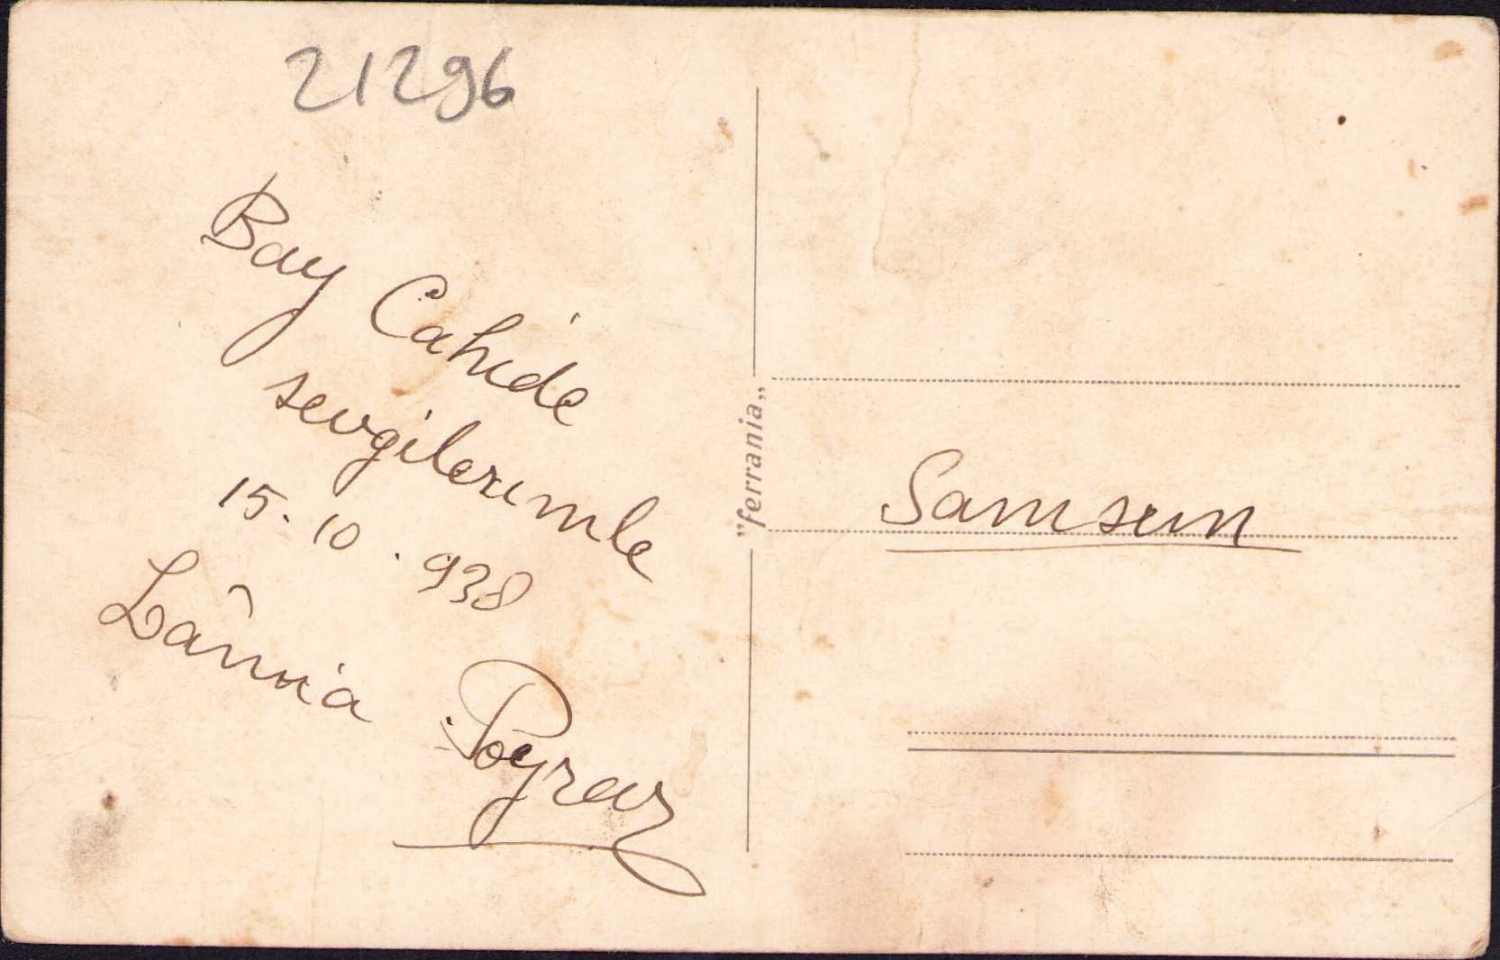 21296
Bay Cahide
sevgilerimle
15.10.938
Lâmia Poyraz
"ferrania"
Samsun